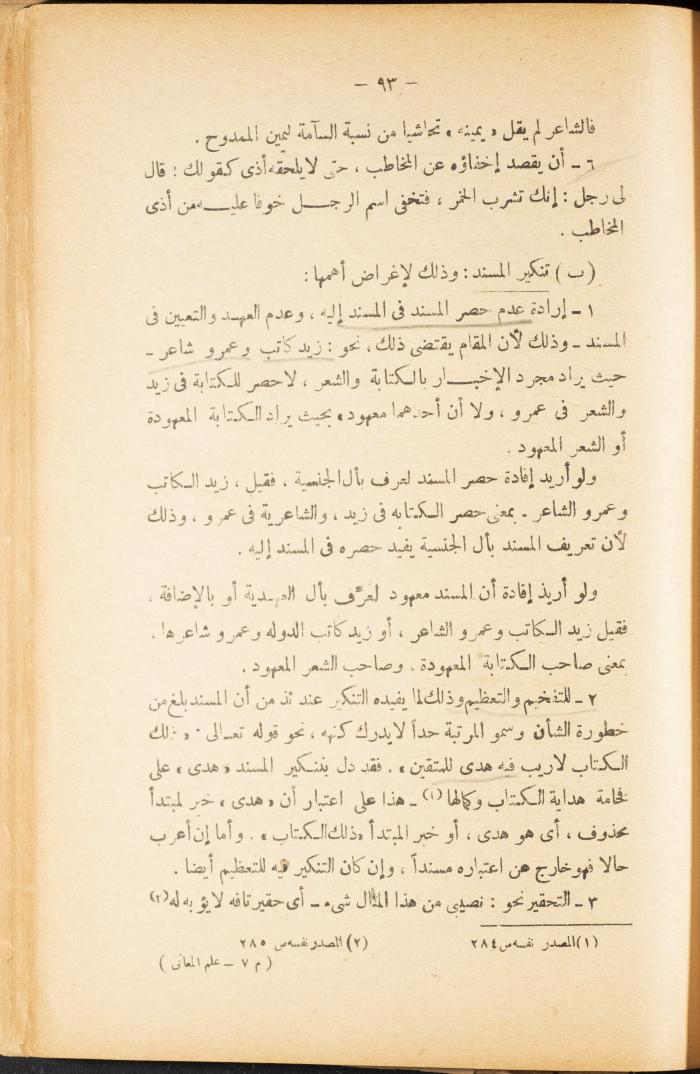 - ٩٣ -
فالشاعر لم يقل « يمينه » تحاشيا من نسبة السآمة ليمين الممدوح .
٦ - أن يقصد إخفاؤه عن المخاطب ، حتى لا يلحقه أذى كقولك : قال
لى رجل : إنك تشرب الخمر ، فتخفى اسم الرجل خوفا عليه من أذى
المخاطب .
( ب ) تنكير المسند : وذلك لإغراض أهمها :
١ - إرادة عدم حصر المسند فى المسند إليه ، وعدم العهد والتعيين فى
المسند - وذلك لأن المقام يقتضى ذلك ، نحو : زيد كاتب وعمرو شاعر -
حيث يراد مجرد الإخبار بالكتابة والشعر ، لا حصر للكتابة فى زيد
والشعر فى عمرو ، ولا أن أحدهما معهود ، بحيث يراد الكتابة المعهودة
أو الشعر المعهود .
ولو أريد إفادة حصر المسند لعرف بأل الجنسية ، فقيل ، زيد الكاتب
وعمرو الشاعر - بمعنى حصر الكتابه فى زيد ، والشاعرية فى عمرو ، وذلك
لأن تعريف المسند بأل الجنسية يفيد حصره فى المسند إليه .
ولو أريذ إفادة أن المسند معهود لعرِّف بأل العهدية أو بالإضافة ،
فقيل زيد الكاتب وعمرو الشاعر ، أو زيد كاتب الدوله وعمرو شاعرها ،
بمعنى صاحب الكتابة المعهودة . وصاحب الشعر المعهود .
٢ - للتفخيم والتعظيم وذلك لما يفيده التنكير عندئذ من أن المسند بلغ من
خطورة الشأن وسمو المرتبة حداً لا يدرك كنهه ، نحو قوله تعالى : « ذلك
الكتاب لاريب فيه هدى للمتقين » . فقد دل بتنكير المسند « هدى » على
فخامة هداية الكتاب وكمالها (١) - هذا على اعتبار أن « هدى » خبر لمبتدأ
محذوف ، أى هو هدى ، أو خبر المبتدأ « ذلك الكتاب » . وأما إن أعرب
حالا فهو خارج عن اعتباره مسنداً ، وإن كان التنكير فيه للتعظيم أيضا .
٣ - التحقير نحو : نصيبى من هذا المال شىء - أى حقير تافه لا يؤبه له (٢)
(١) المصدر نفسه ص ٢٨٤
(٢) المصدر نفسه ص ٢٨٥
( م ٧ - علم المعانى )